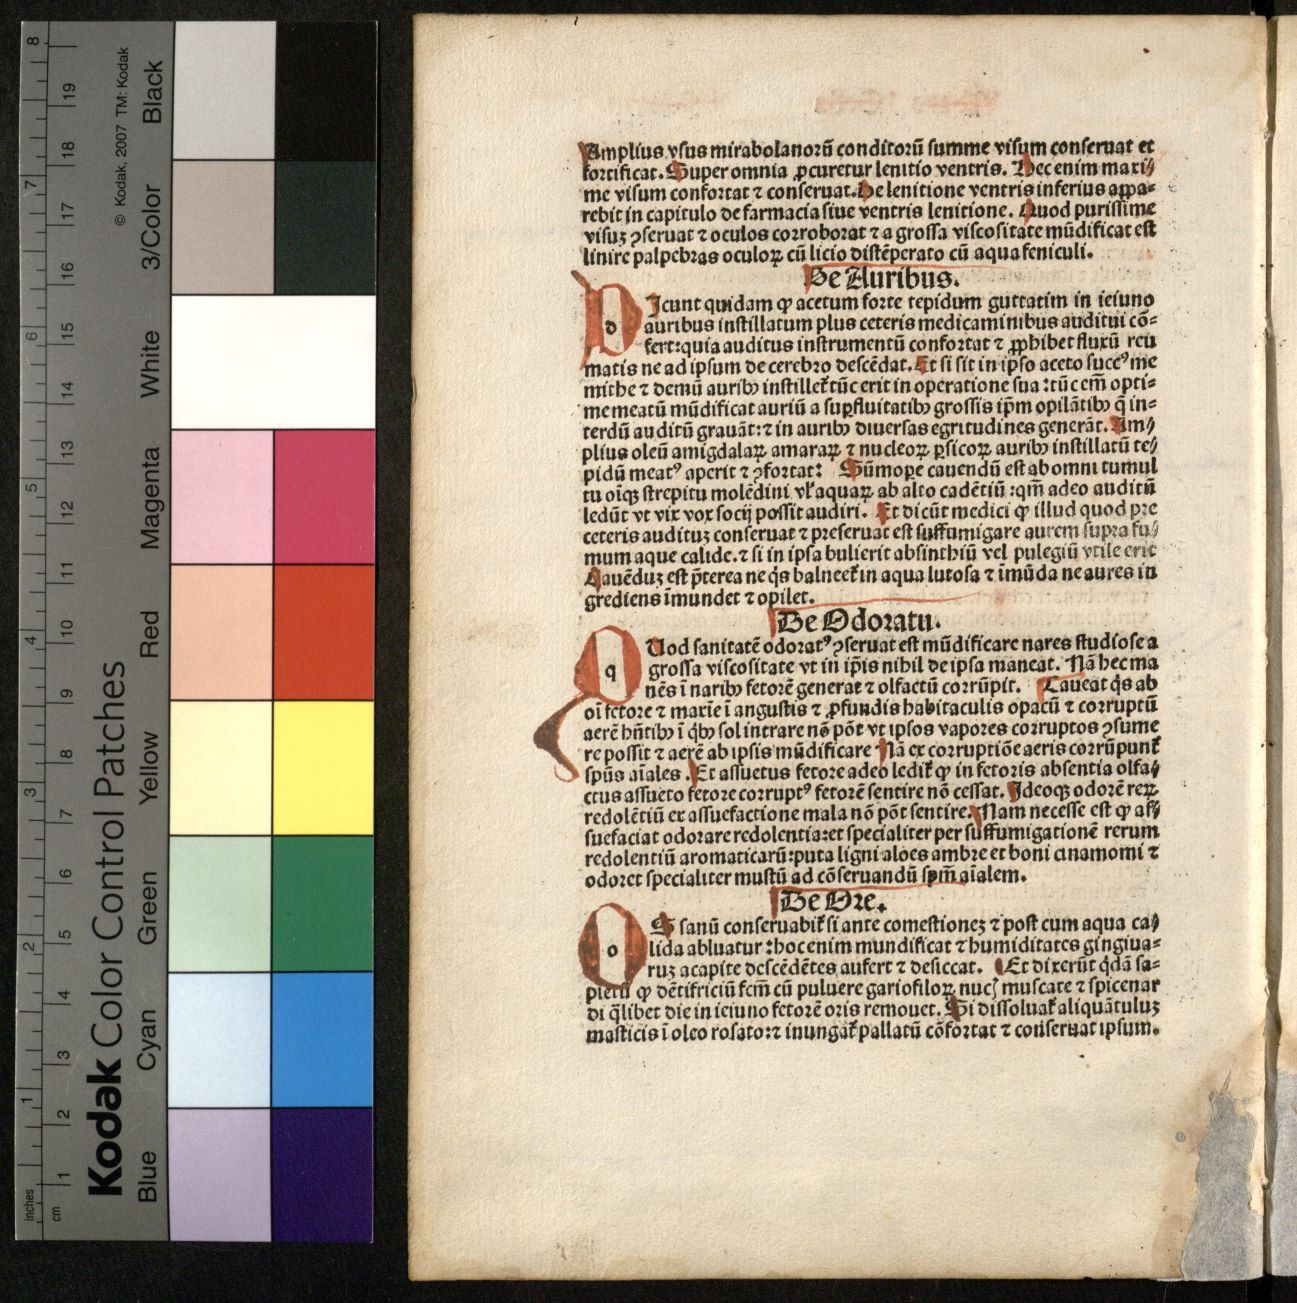 Amplius vsus mirabolanorū conditorū summe visum conseruat et
fortificat. Super omnia ꝓcuretur lenitio ventris. Hec enim maxi⸗
me visum confortat ⁊ conseruat. De lenitione ventris inferius appa⸗
rebit in capitulo de farmacia siue ventris lenitione. Quod purissime
visuꝫ ꝯseruat ⁊ oculos corroborat ⁊ a grossa viscositate mūdificat est
linire palpebras oculoꝝ cū licio distēperato cū aqua feniculi.
De Auribus.
d Icunt quidam ꝙ acetum forte tepidum guttatim in ieiuno
auribus instillatum plus ceteris medicaminibus auditui cō⸗
fert: quia auditus instrumentū confortat ⁊ ꝓphibet fluxū reu
matis ne ad ipsum de cerebro descēdat. Et si sit in ipso aceto succꝰ me
mithe ⁊ demū auribꝫ instilletᷣ tūc erit in operatione sua: tūc em̄ opti⸗
me meatū mūdificat auriū a suꝑfluitatibꝫ grossis ip̄m opilātibꝫ q̄ in⸗
terdū auditū grauāt: ⁊ in auribꝫ diuersas egritudines generāt. Am⸗
plius oleū amigdalaꝝ amaraꝝ ⁊ nucleoꝝ ꝑsicoꝝ auribꝫ instillatū te⸗
pidū meatꝰ aperit ⁊ ꝯfortat: Sūmope cauendū est ab omni tumul
tu oīqꝫ strepitu molēdini vl' aquaꝝ ab alto cadētiū: qm̄ adeo auditū
ledūt vt vix vox socij possit audiri. Et dicūt medici ꝙ illud quod pre
ceteris audituꝫ conseruat ⁊ preseruat est suffumigare aurem supra fu⸗
mum aque calide. ⁊ si in ipsa bulierit absinthiū vel pulegiū vtile erit
Cauēduꝫ est p̄terea ne q̇s balneetᷣ in aqua lutosa ⁊ īmūda ne aures in
grediens īmundet ⁊ opilet.
De Odoratu.
q Uod sanitatē odoratꝰ ꝯseruat est mūdificare nares studiose a
grossa viscositate vt in ip̄is nihil de ipsa maneat. Nā hec ma
nēs ī naribꝫ fetorē generat ⁊ olfactū corrūpit. Caueat q̇s ab
oī fetore ⁊ maxīe ī angustis ⁊ ꝓfundis habitaculis opacū ⁊ corruptū
aerē hn̄tibꝫ ī qͥbꝫ sol intrare nō pōt vt ipsos vapores corruptos ꝯsume
re possit ⁊ aerē ab ipsis mūdificare Nā ex corruptiōe aeris corrūpuntᷣ
spūs aīales. Et assuetus fetore adeo leditᷣ ꝙ in fetoris absentia olfa⸗
ctus assueto fetore corruptꝰ fetorē sentire nō cessat. Ideoqꝫ odorē reꝝ
redolētiū ex assuefactione mala nō pōt sentire. Nam necesse est ꝙ as⸗
suefaciat odorare redolentia: et specialiter per suffumigationē rerum
redolentiū aromaticarū: puta ligni aloes ambre et boni cinamomi ⁊
odoret specialiter mustū ad cōseruandū spm̄ aīalem.
De Ore.
o S sanū conseruabitᷣ si ante comestioneꝫ ⁊ post cum aqua ca⸗
lida abluatur: hoc enim mundificat ⁊ humiditates gingiua⸗
ruꝫ a capite descēdētes aufert ⁊ desiccat. Et dixerūt q̇dā sa⸗
pietū ꝙ dētifriciū fcm̄ cū puluere gariofiloꝝ nucꝭ muscate ⁊ spicenar
di q̄libet die in ieiuno fetorē oris remouet. Si dissoluatᷣ aliquātuluꝫ
masticis ī oleo rosato: ⁊ inungatᷣ pallatū cōfortat ⁊ conseruat ipsum.
Kodak Color Control Patches
© Kodak, 2007 TM: Kodak
Blue
Cyan
Green
Yellow
Red
Magenta
White
3/Color
Black
inches
1
2
3
4
5
6
7
8
cm
1
2
3
4
5
6
7
8
9
10
11
12
13
14
15
16
17
18
19